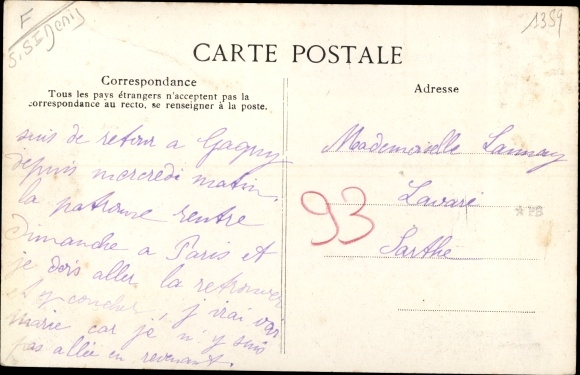 F
S. St Denis
1359
CARTE POSTALE
Correspondance
Tous les pays étrangers n'acceptent pas la
correspondance au recto, se renseigner à la poste.
Adresse
suis de retour a Gagny
depuis mercredi matin.
la patronne rentre
Dimanche a Paris et
je dois aller la retrouver
et y coucher, j'irai voir
marie car je n'y suis
pas allée en revenant.
Mademoiselle Launay
Lavaré
Sarthe
93